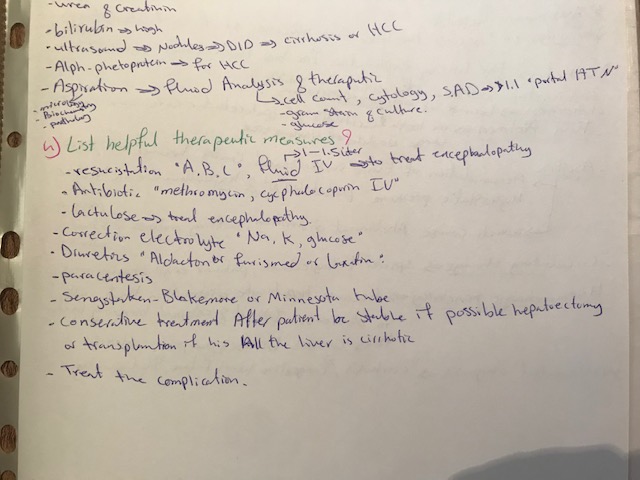 - urea & Creatinin
- bilirubin ⇒ high
- ultrasound ⇒ Nodules ⇒ DID ⇒ cirrhosis or HCC
- Alph-phetoprotein ⇒ for HCC
- Aspiration ⇒ fluid Analysis & theraputic
- microbiology
- Biochemistry
- pathology
↳ cell count, cytology, SAD → >1.1 "portal HTN"
- gram stain & culture.
- glucose
h) List helpful therapeutic measures?
- resuscistation "A.B.C", fluid IV ⇒ to treat encephaulopathy
→ 1-1.5 liter
- Antibiotic "methromycin, cycphalocoporin IV"
- Lactulose ⇒ treat encephelopathy.
- Correction electrolyte "Na, K, glucose"
- Diuretics "Aldacton or furismed or
- paracentesis
- Sengstaken-Blakemore or Minnesota tube
- Conserative treatment After patient be stable if possible hepatoectomy
or transplantion if his All the liver is cirrhotic
- Treat the complication.